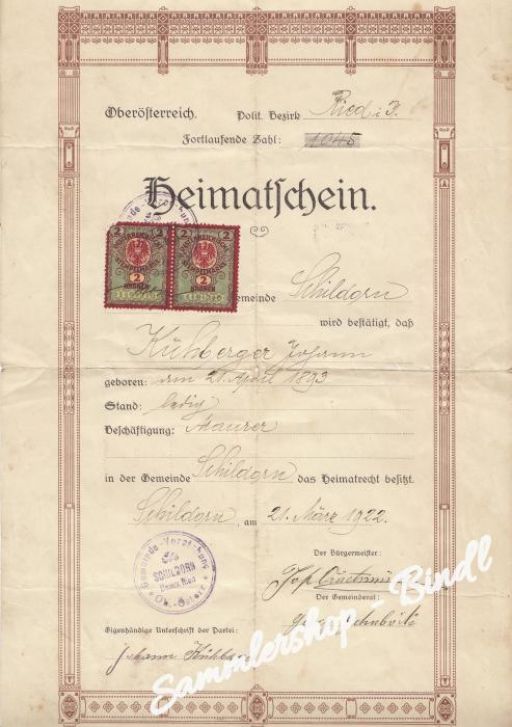 Oberösterreich. Polit. Bezirk Ried i. I.
Fortlaufende Zahl: 1045
Heimatschein.
2 2 2 2
2 2
KRONEN KRONEN
Gemeinde Schildorn
wird bestätigt, daß
Kühberger Johann
geboren: am 21. April 1893
Stand: ledig
Beschäftigung: Maurer
in der Gemeinde Schildorn das Heimatrecht besitzt.
Schildorn, am 21. März 1922.
Gemeinde-Vorstehung
SCHILDORN
Bezirk Ried
Ob.-Österr.
Der Bürgermeister:
Der Gemeinderat:
Eigenhändige Unterschrift der Partei:
Johann Kühberger
Sammlershop - Bindl